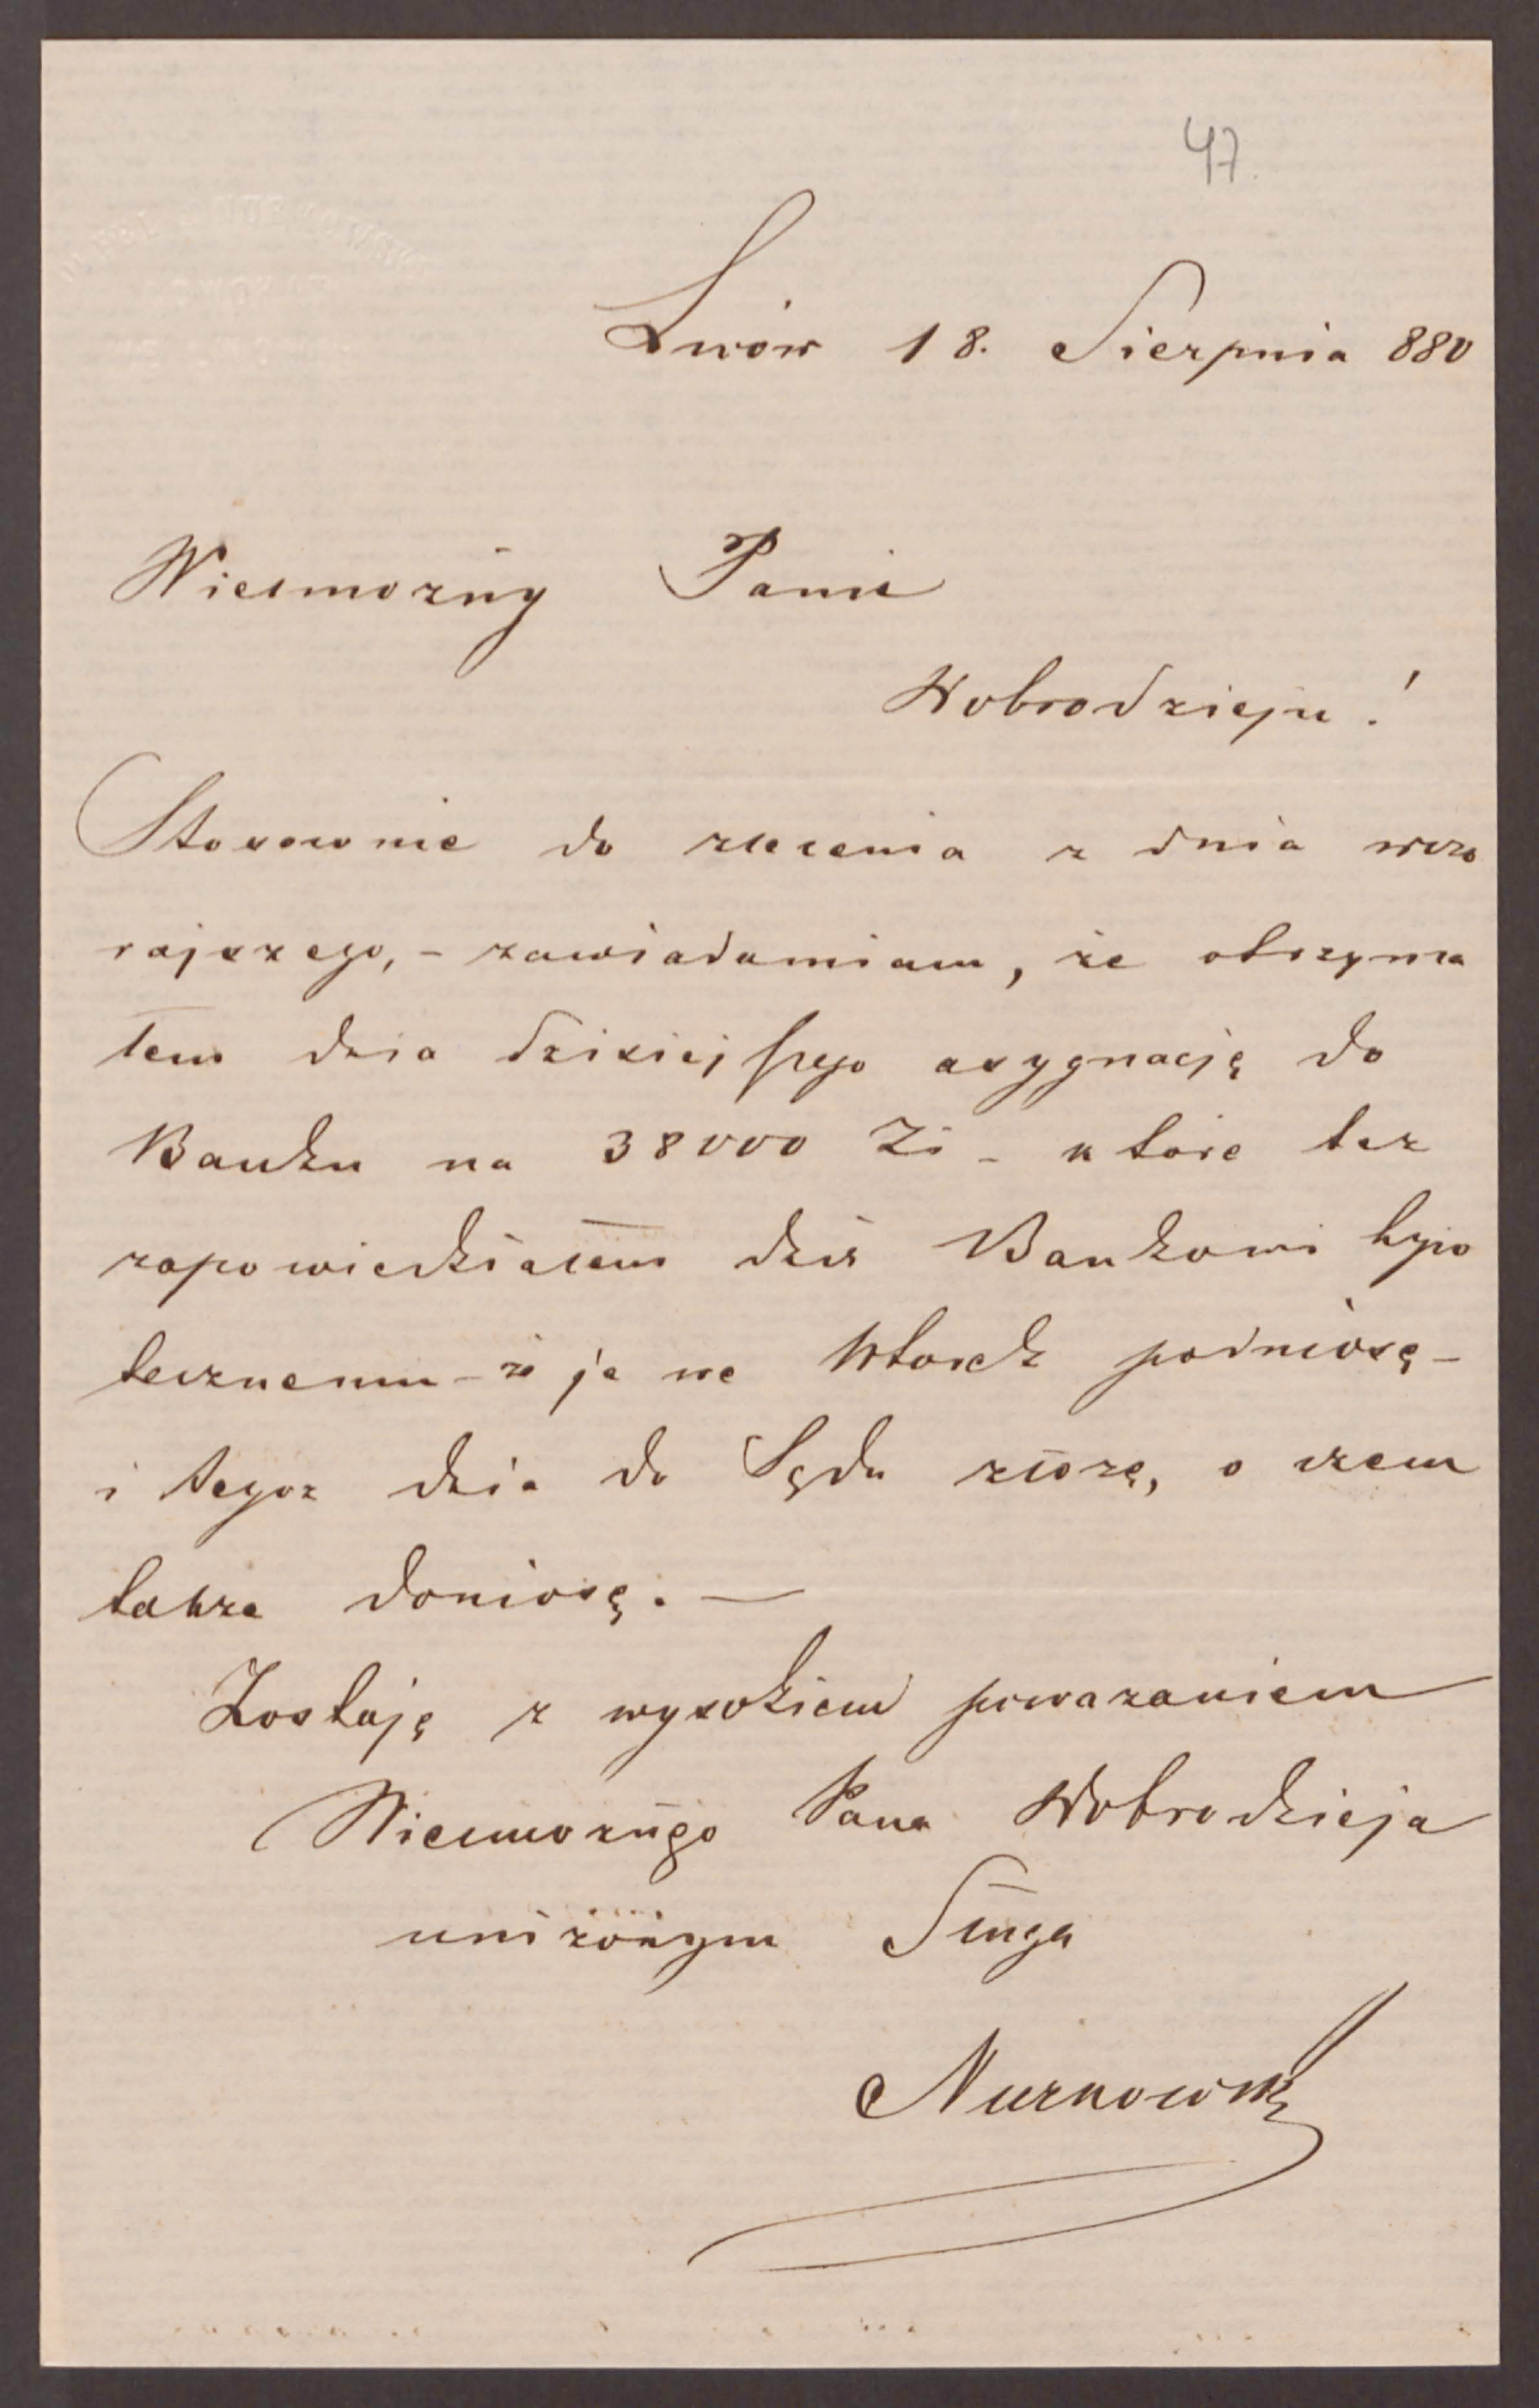 47.
Lwów 18. Sierpnia 880
Wielmożny Panie
Dobrodzieju!
Stosownie do zlecenia z dnia wczo
rajszego, – zawiadamiam, że otrzyma
łem dnia dzisiejszego asygnację do
Banku na 38000 Zł – które też
zapowiedziałem dziś Bankowi hypo
tecznemu – że je we Wtorek podniosę –
i tegoż dnia do Sądu złożę, o czem
także doniosę. —
Zostaję z wysokiem poważaniem
Wielmożngo Pana Dobrodzieja
uniżonym Sługą